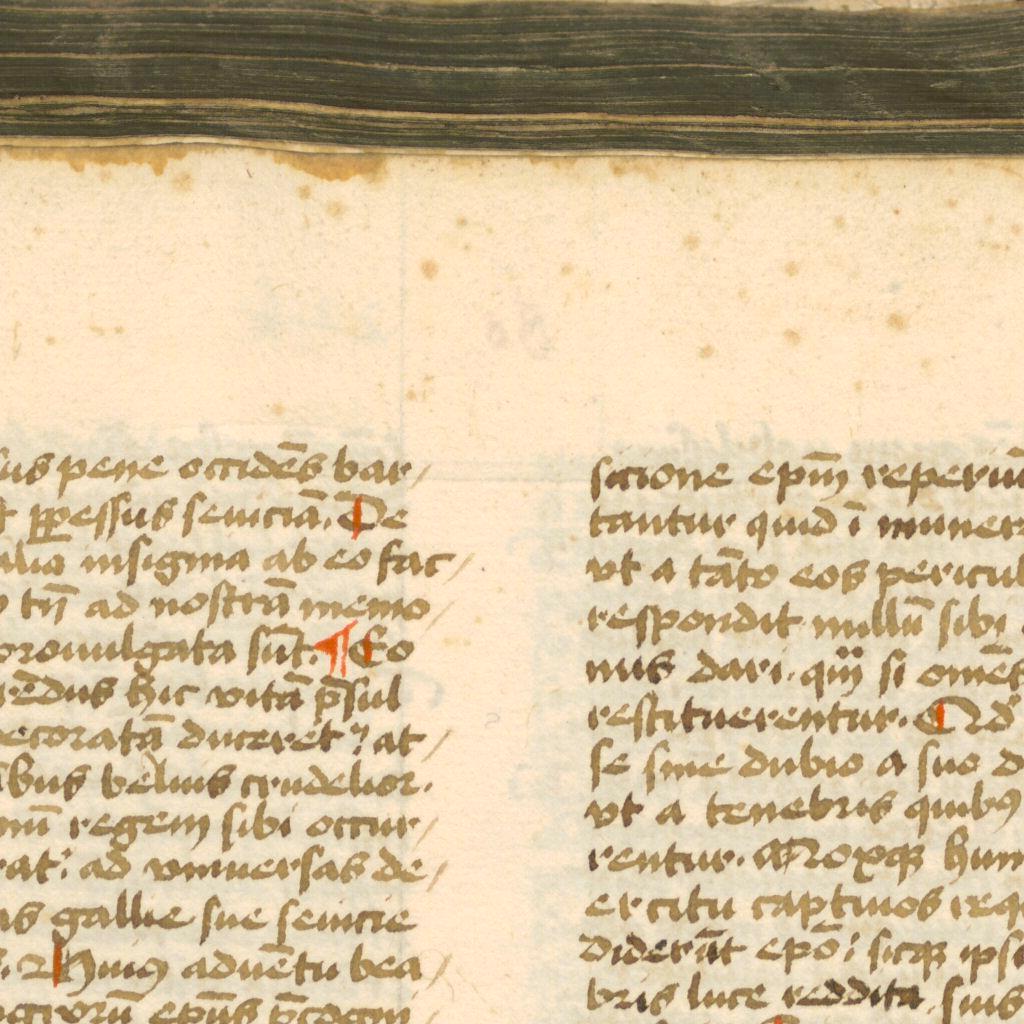 us pene occidēs bar/
ꝑpessus seuiciā. De
insignia ab eo fac/
tn̄ ad nostrā memo/
promulgata sūt. ¶ Eo
hic vitā p̄sul
decoratā duceret ⁊ at/
bus beluis crudelior.
regem sibi occur/
rat: ad vniuersas de/
as gallie sue seuicie
Huiꝰ aduētu bea/
ep̄us p̄cogni
sicione ep̄m reperiū
tantur quid ī muner
vt a tāto eos pericul
respondit nullū sibi
nus dari. qm̄ si omēs
restituerentur. Ad
se sine dubio a suo d
vt a tenebris quibꝰ
rentur. Moxqꝫ hun
ercitu captiuos req
diderūt ep̄o: sicqꝫ ipsi
bris luce reddita. suis